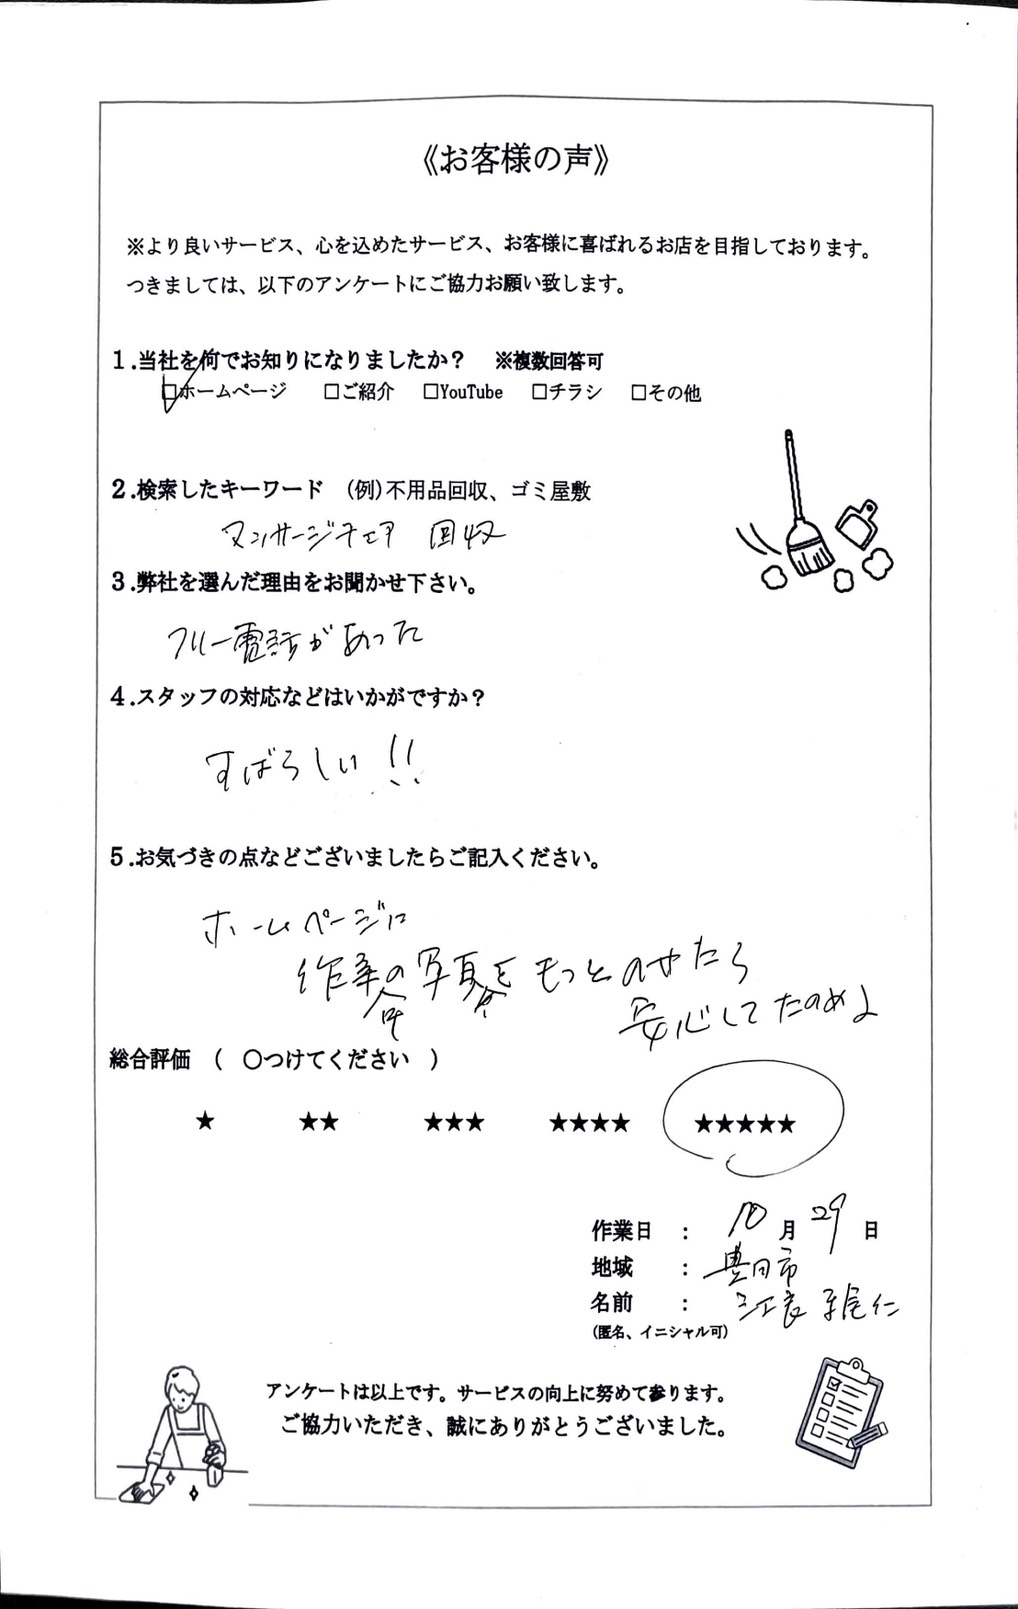 《お客様の声》
※より良いサービス、心を込めたサービス、お客様に喜ばれるお店を目指しております。
つきましては、以下のアンケートにご協力お願い致します。
1.当社を何でお知りになりましたか？ ※複数回答可
☑ホームページ □ご紹介 □YouTube □チラシ □その他
2.検索したキーワード (例)不用品回収、ゴミ屋敷
マッサージチェア 回収
3.弊社を選んだ理由をお聞かせ下さい。
フリー電話があった
4.スタッフの対応などはいかがですか？
すばらしい!!
5.お気づきの点などございましたらご記入ください。
ホームページに
作業の写真をもっとのせたら
安心してたのめよ
総合評価 ( ○つけてください )
★ ★★ ★★★ ★★★★ ★★★★★
作業日 : 10月29日
地域 : 豊田市
名前 :
(匿名、イニシャル可)
アンケートは以上です。サービスの向上に努めて参ります。
ご協力いただき、誠にありがとうございました。